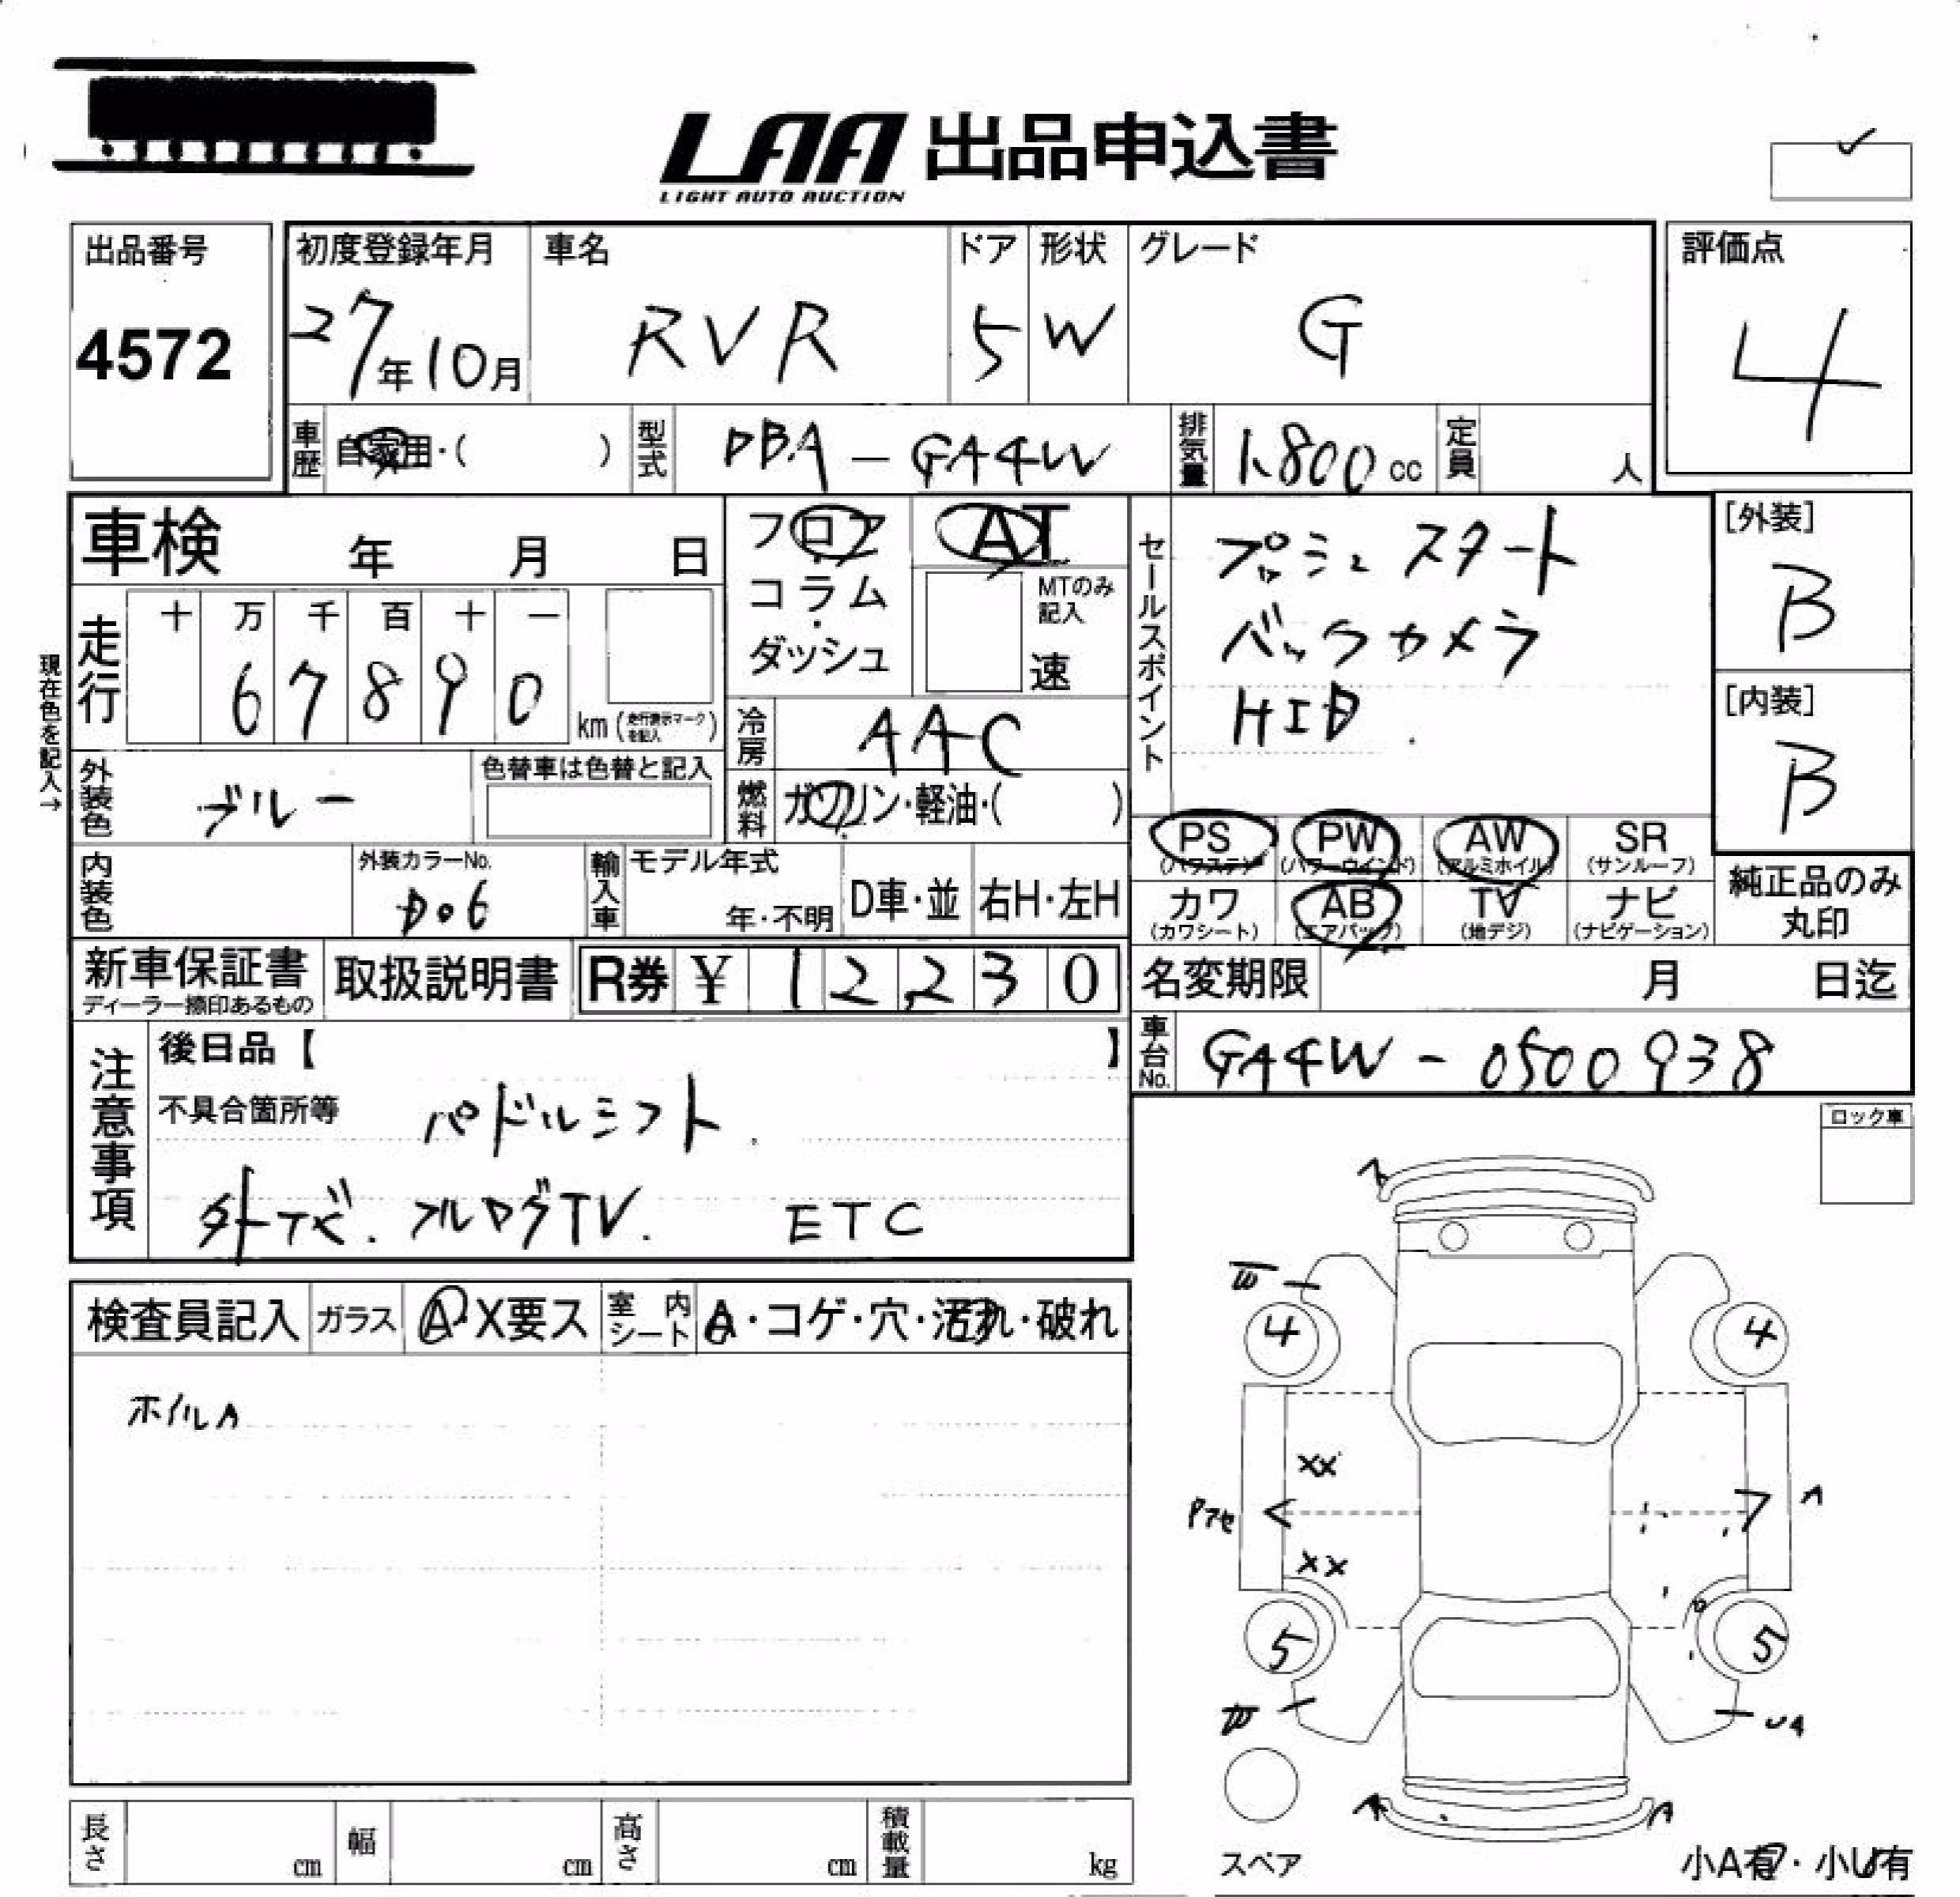 LAA 出品申込書
LIGHT AUTO AUCTION
出品番号
4572
初度登録年月
27年10月
車名
RVR
ドア
5
形状
W
グレード
G
評価点
4
車歴
自家用・( )
型式
DBA - GA4W
排気量
1,800 cc
定員
人
車検 年 月 日
フロア
コラム
ダッシュ
AT
MTのみ
記入
速
セールスポイント
プッシュスタート
バックカメラ
HID
[外装]
B
[内装]
B
現在色を記入→
走行
十 万 千 百 十 一
6 7 8 9 0
km (走行表示マークを記入)
冷房
AAC
外装色
ブルー
色替車は色替と記入
燃料
ガソリン・軽油・( )
PS (パワステ)
PW (パワーウインド)
AW (アルミホイル)
SR (サンルーフ)
カワ (カワシート)
AB (エアバック)
TV (地デジ)
ナビ (ナビゲーション)
純正品のみ
丸印
内装色
外装カラーNo.
D06
輸入車
モデル年式
年・不明
D車・並
右H・左H
新車保証書
ディーラー捺印あるもの
取扱説明書
R券 ¥ 12,230
名変期限 月 日迄
車台No.
GA4W - 0500938
注意事項
後日品【 】
不具合箇所等
パドルシフト
外ナビ. フルセグTV. ETC
ロック車
検査員記入
ガラス
A・X要ス
室内
シート
A・コゲ・穴・汚れ・破れ
ホイルA
4
4
XX
Pアセ
A
XX
5
5
U4
A
A
スペア
小A有・小U有
長さ
cm
幅
cm
高さ
cm
積載量
kg